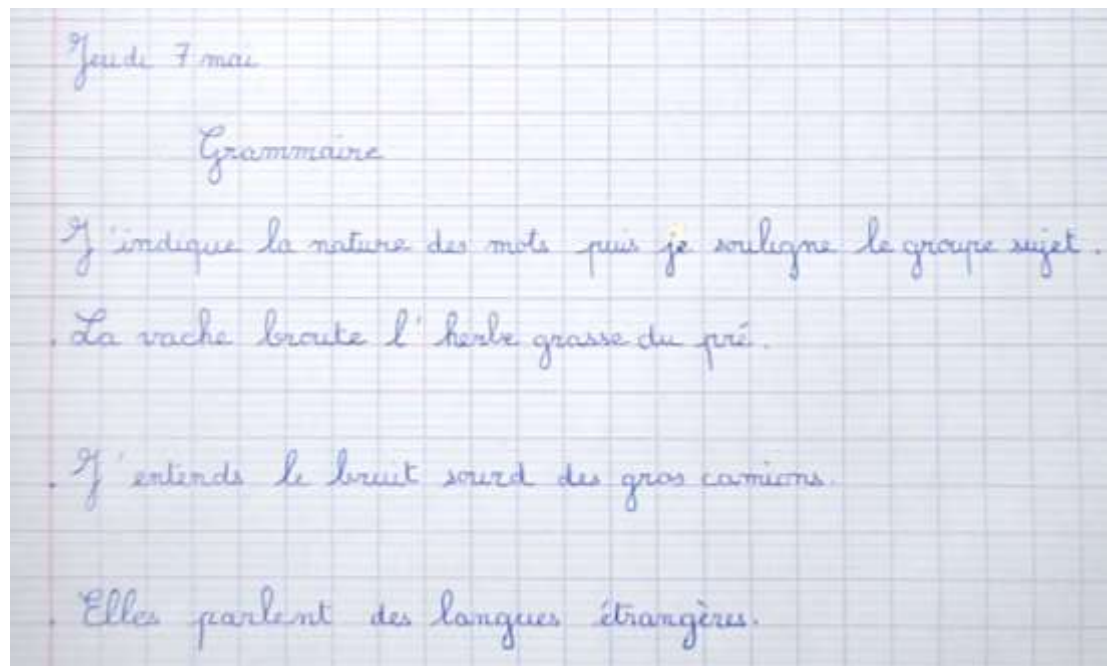 Jeudi 7 mai
Grammaire
J'indique la nature des mots puis je souligne le groupe sujet.
. La vache broute l'herbe grasse du pré.
. J'entends le bruit sourd des gros camions.
. Elles parlent des langues étrangères.